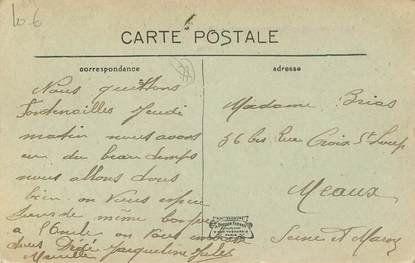 10-6
CARTE POSTALE
correspondance
adresse
Nous quittons
Fontenailles Jeudi
matin nous avons
eu du beau temps
nous allons tous
bien on vous espère
de même
à on vous
tous Dédé Jacqueline
Marcelle
Madame Brias
56 bis Rue Croix St Loup
Meaux
Seine et Marne